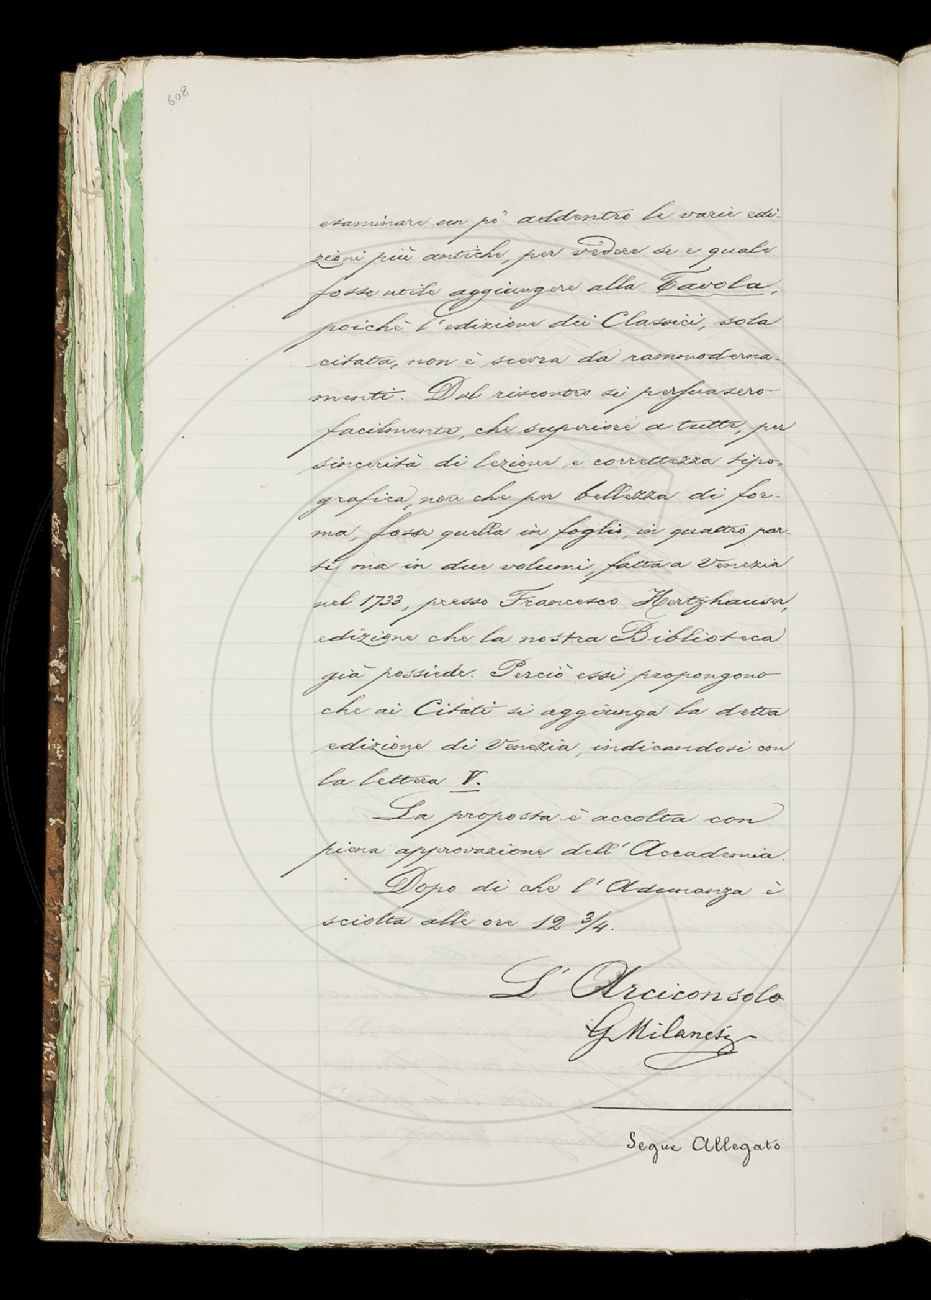 608
esaminare un pò addentro le varie edi-
zioni più antiche, per vedere se e quale
fosse utile aggiungere alla Tavola,
poichè l'edizione dei Classici, sola
citata, non è scevra da rammoderna-
menti. Dal riscontro si persuasero
facilmente, che superiore a tutte, per
sincerità di lezione e correttezza tipo-
grafica, non che per bellezza di for-
ma, fosse quella in foglio, in quattro par-
ti, ma in due volumi, fatta a Venezia
nel 1733, presso Francesco Hertzhauser,
edizione che la nostra Biblioteca
già possiede. Perciò essi propongono
che ai Citati si aggiunga la detta
edizione di Venezia, indicandosi con
la lettera V.
La proposta è accolta con
piena approvazione dell'Accademia.
Dopo di che l'Adunanza è
sciolta alle ore 12 3/4.
L'Arciconsolo
G Milanesi
Segue Allegato